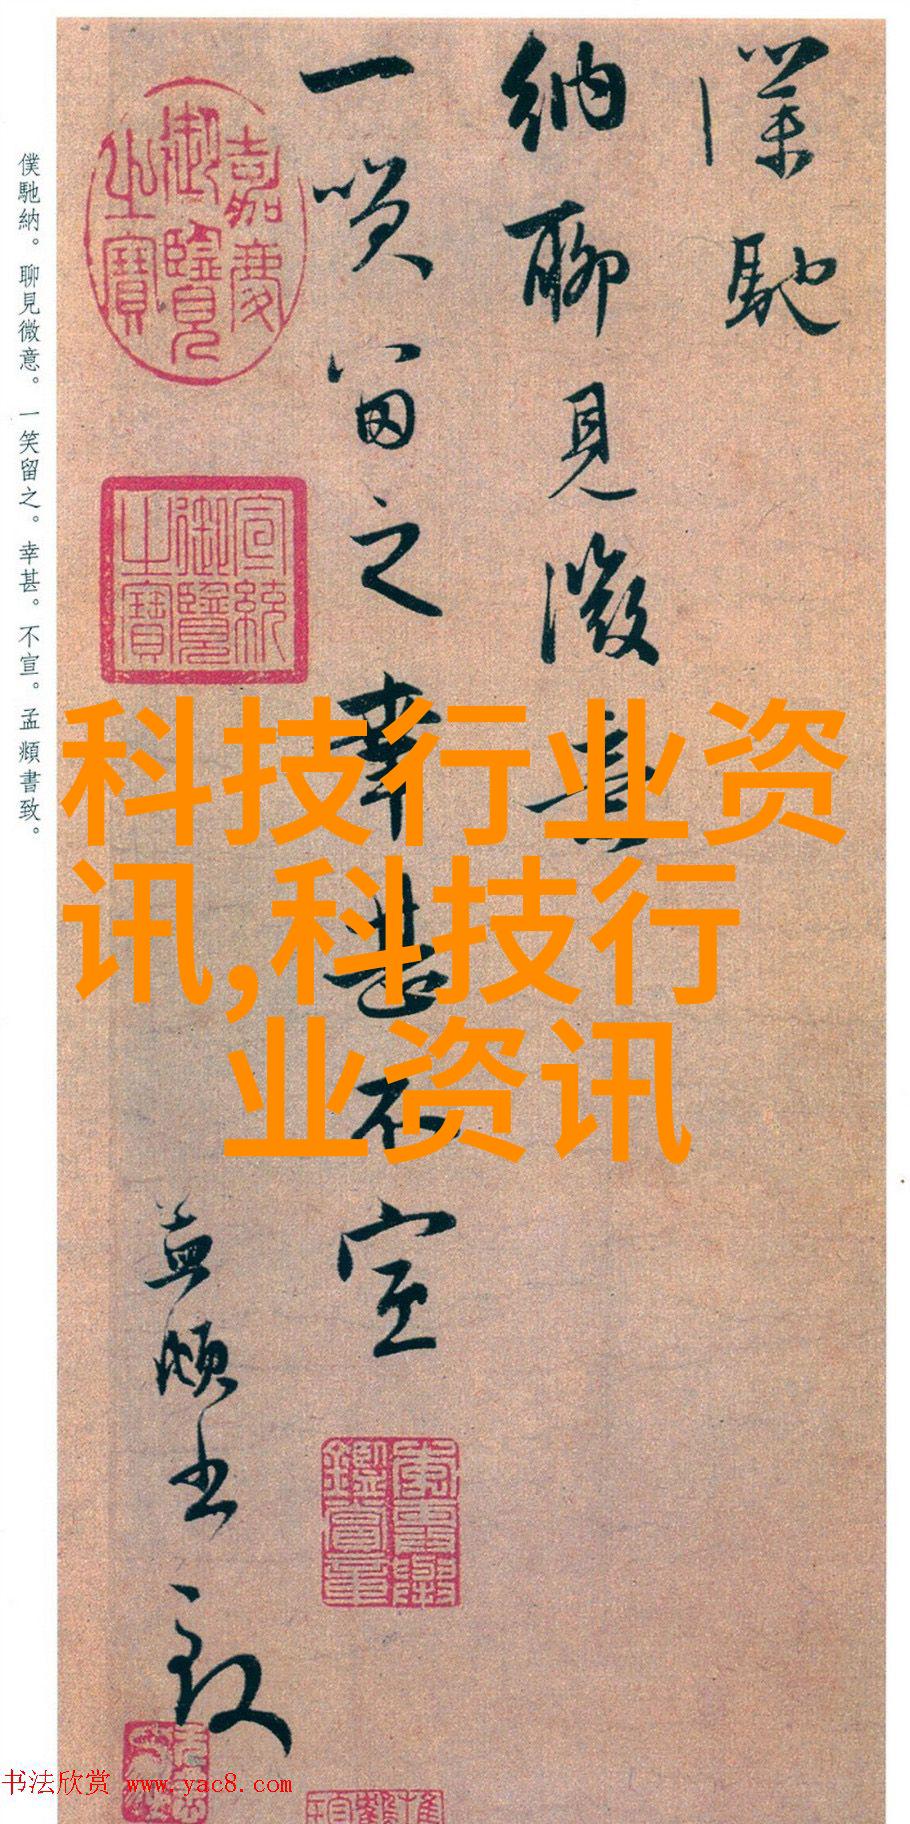 僕馳
納聊見微意
一笑留之幸甚不宣
孟頫書致
嘉慶
御覽
之寶
宣統
御覽
之寶
僕馳納。聊見微意。一笑留之。幸甚。不宣。孟頫書致。
科技行业资
讯,科技行
业资讯
书法欣赏 www.yac8.com